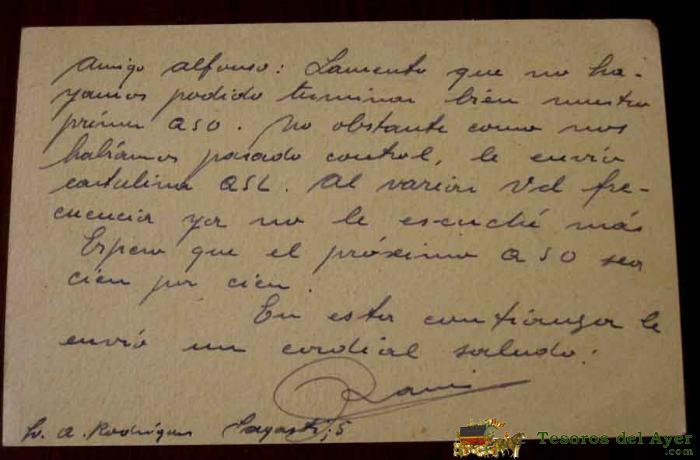 Amigo Alfonso: Lamento que no ha-
yamos podido terminar bien nuestro
primer QSO. No obstante como nos
habíamos pasado control, le envío
cartulina QSL. Al variar Vd fre-
cuencia ya no le escuché más
Espero que el próximo QSO sea
cien por cien.
En esta confianza le
envío un cordial saludo:
A. Rodríguez Sagasta, 5
Tesoros del Ayer
.com